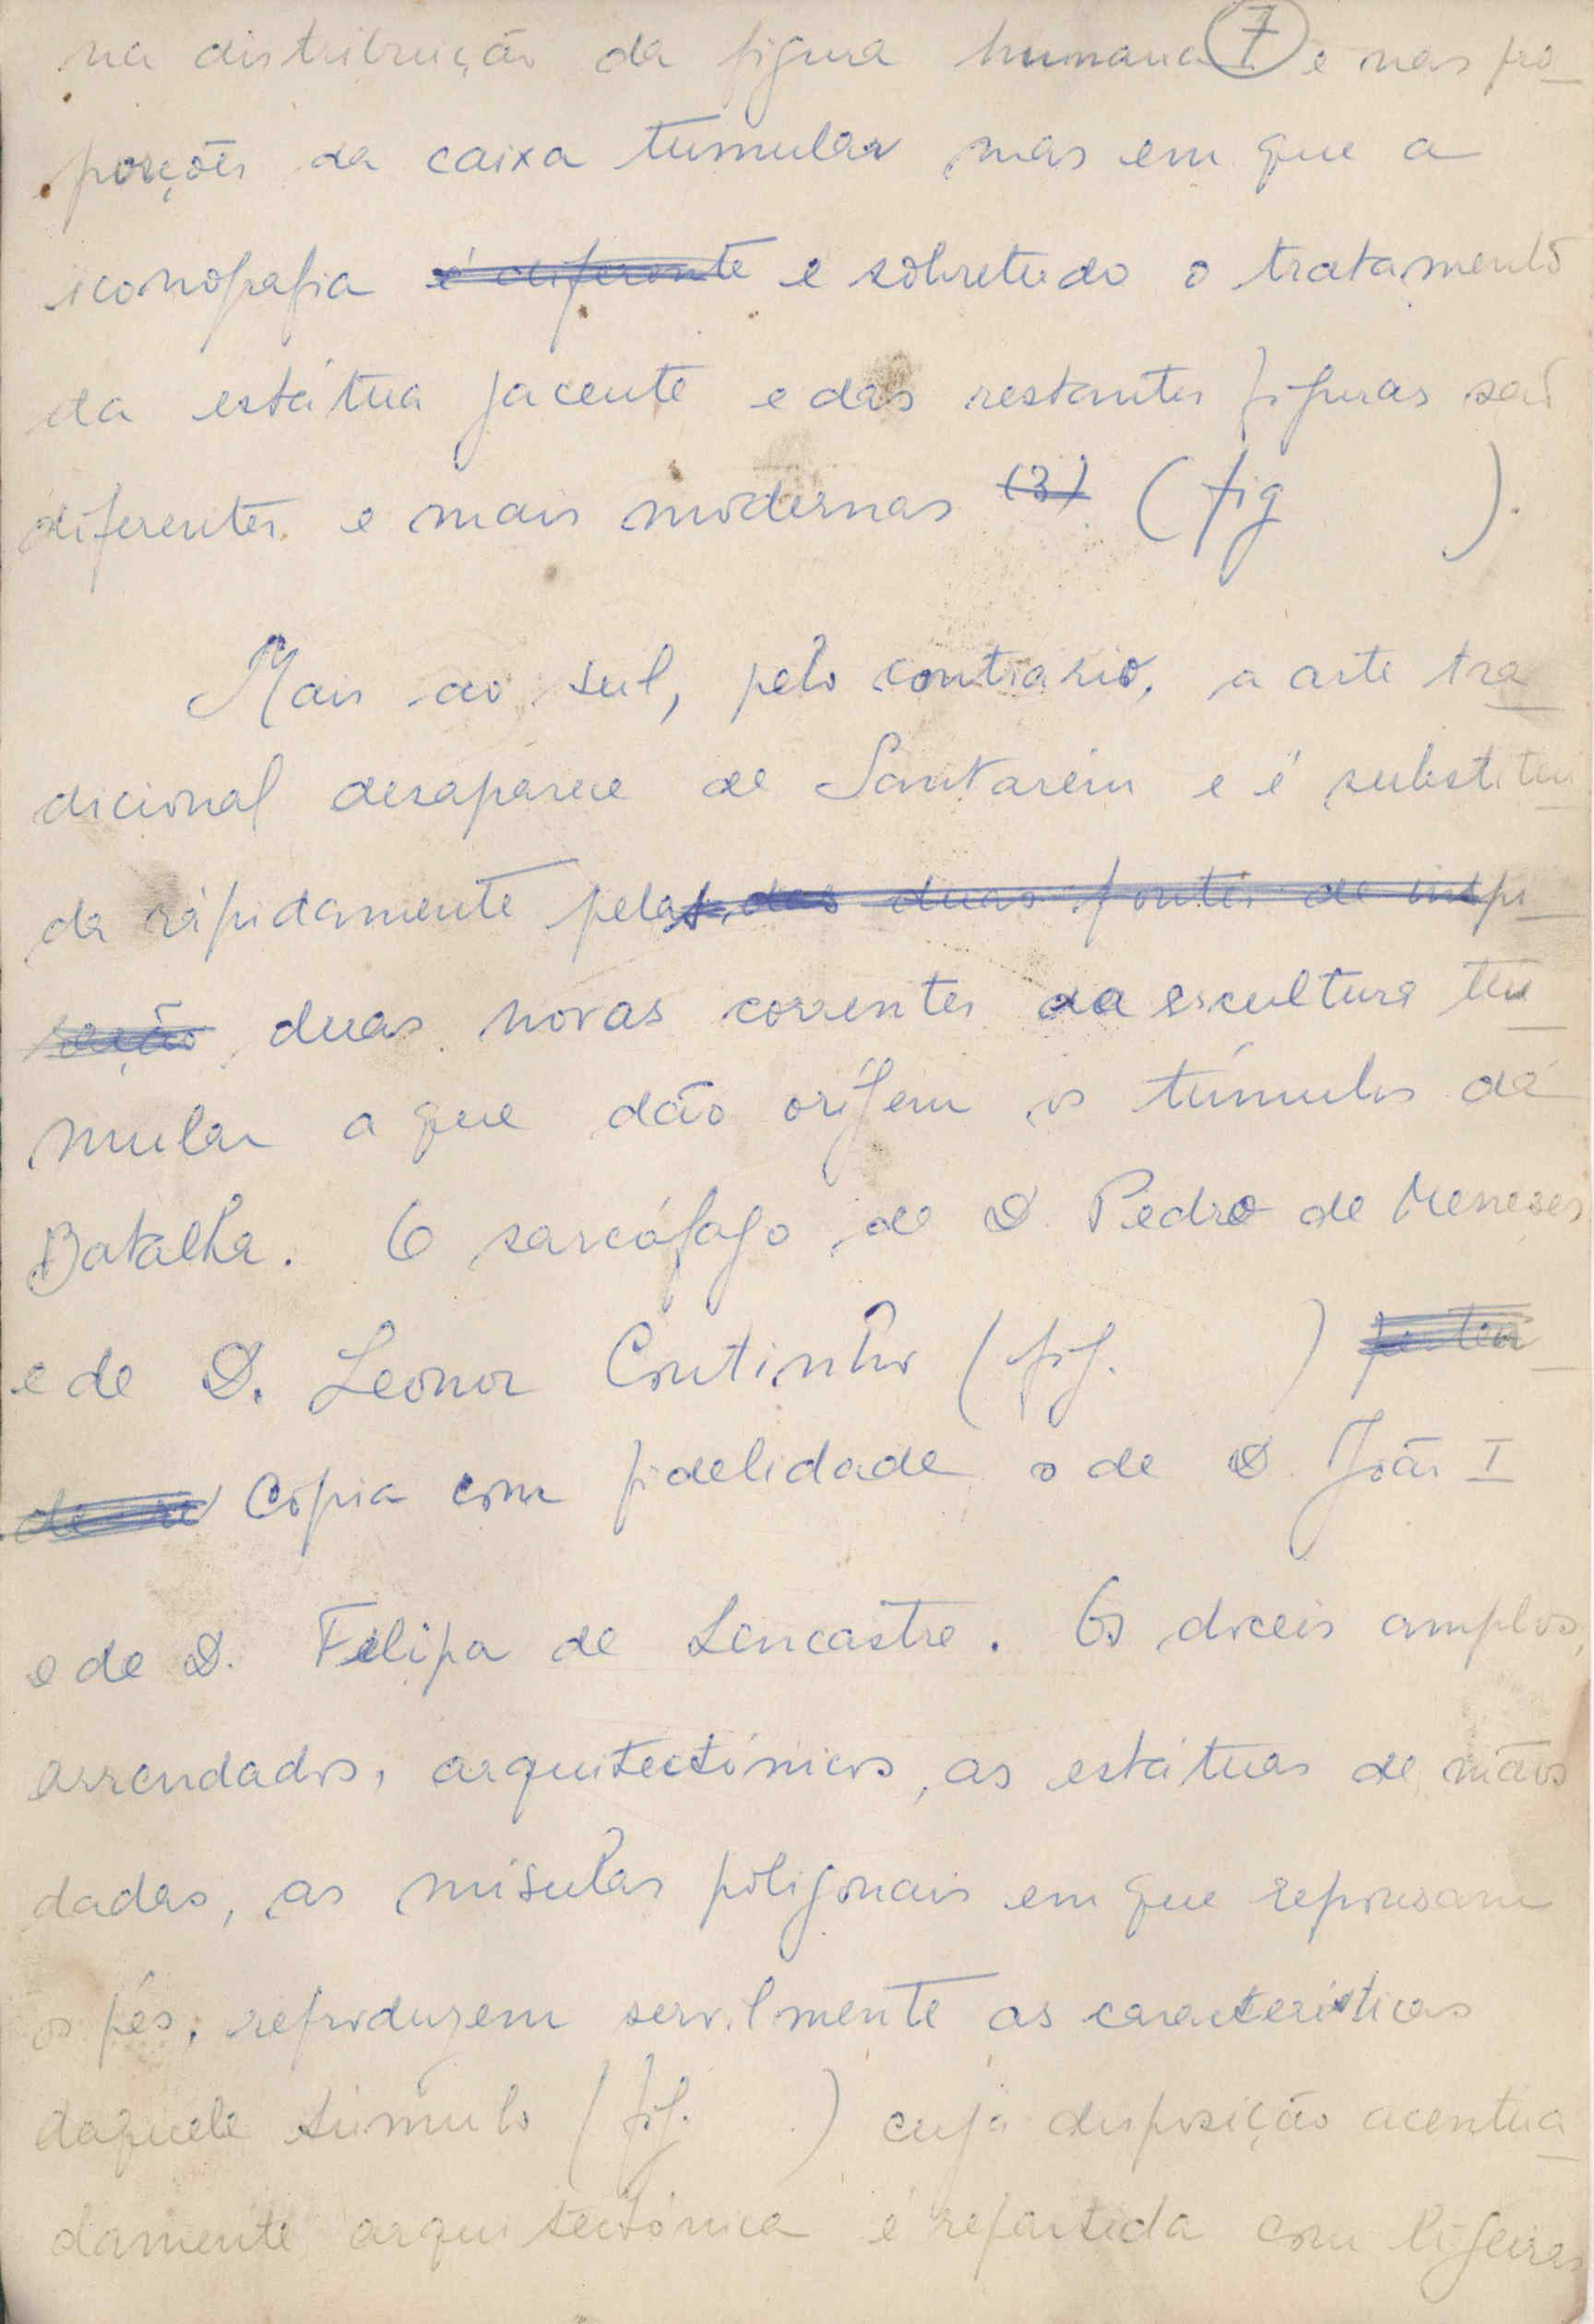 na distribuição da figura humana (7) e nas pro_
porções da caixa tumular mas em que a
iconografia é diferente e sobretudo o tratamento
da estátua jacente e das restantes figuras são
diferentes e mais modernas (3) (fig ).
Mais ao sul, pelo contrario, a arte tra_
dicional desaparece de Santarém e é substituí_
da rápidamente pelas das duas fontes de inspi_
ração duas novas correntes da escultura tu_
mular a que dão orígem os túmulos da
Batalha. O sarcófago de D. Pedro de Meneses
e de D. Leonor Coutinho (fig. )
Copia com fidelidade o de D. João I
e de D. Felipa de Lencastre. Os doceis amplos,
arrendados, arquitectónicos, as estátuas de mãos
dadas, as mísulas poligonais em que repousam
os pés, reproduzem servilmente as características
daquele túmulo (fig. ) cuja disposição acentua_
damente arquitectónica é repartida com ligeiras